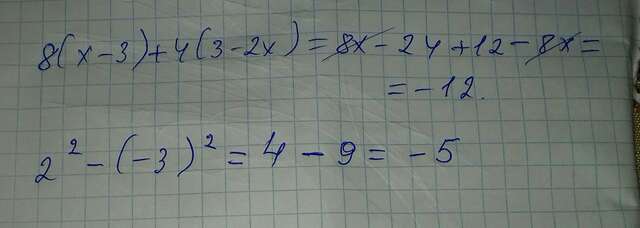 8(x-3)+4(3-2x)=8x-24+12-8x=
=-12.
2²-(-3)²=4-9=-5